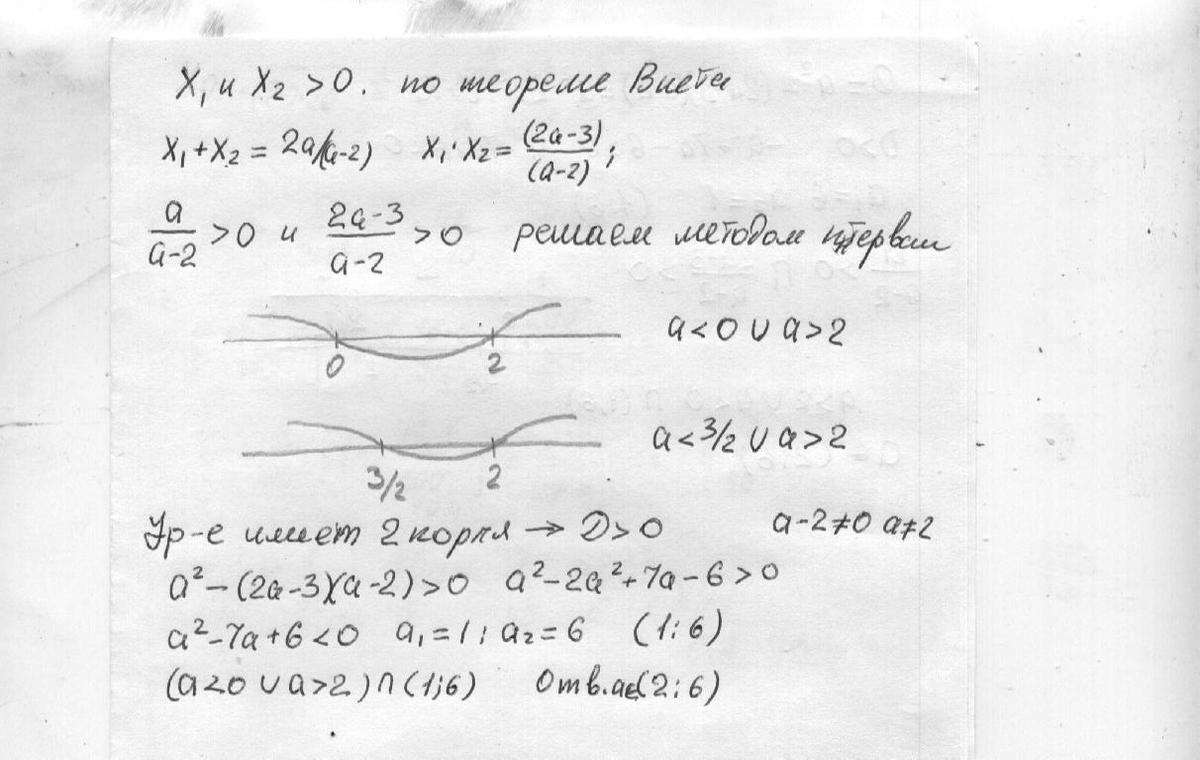 X₁ и X₂ > 0. по теореме Виета
X₁ + X₂ = 2a/(a-2) X₁·X₂ = (2a-3)/(a-2);
a/(a-2) > 0 и (2a-3)/(a-2) > 0 решаем методом интервал
0 2 a<0 ∪ a>2
3/2 2 a<3/2 ∪ a>2
Ур-е имеет 2 корня → D>0 a-2≠0 a≠2
a²-(2a-3)(a-2)>0 a²-2a²+7a-6>0
a²-7a+6<0 a₁=1; a₂=6 (1;6)
(a<0 ∪ a>2) ∩ (1;6) Отв. a∈(2;6)